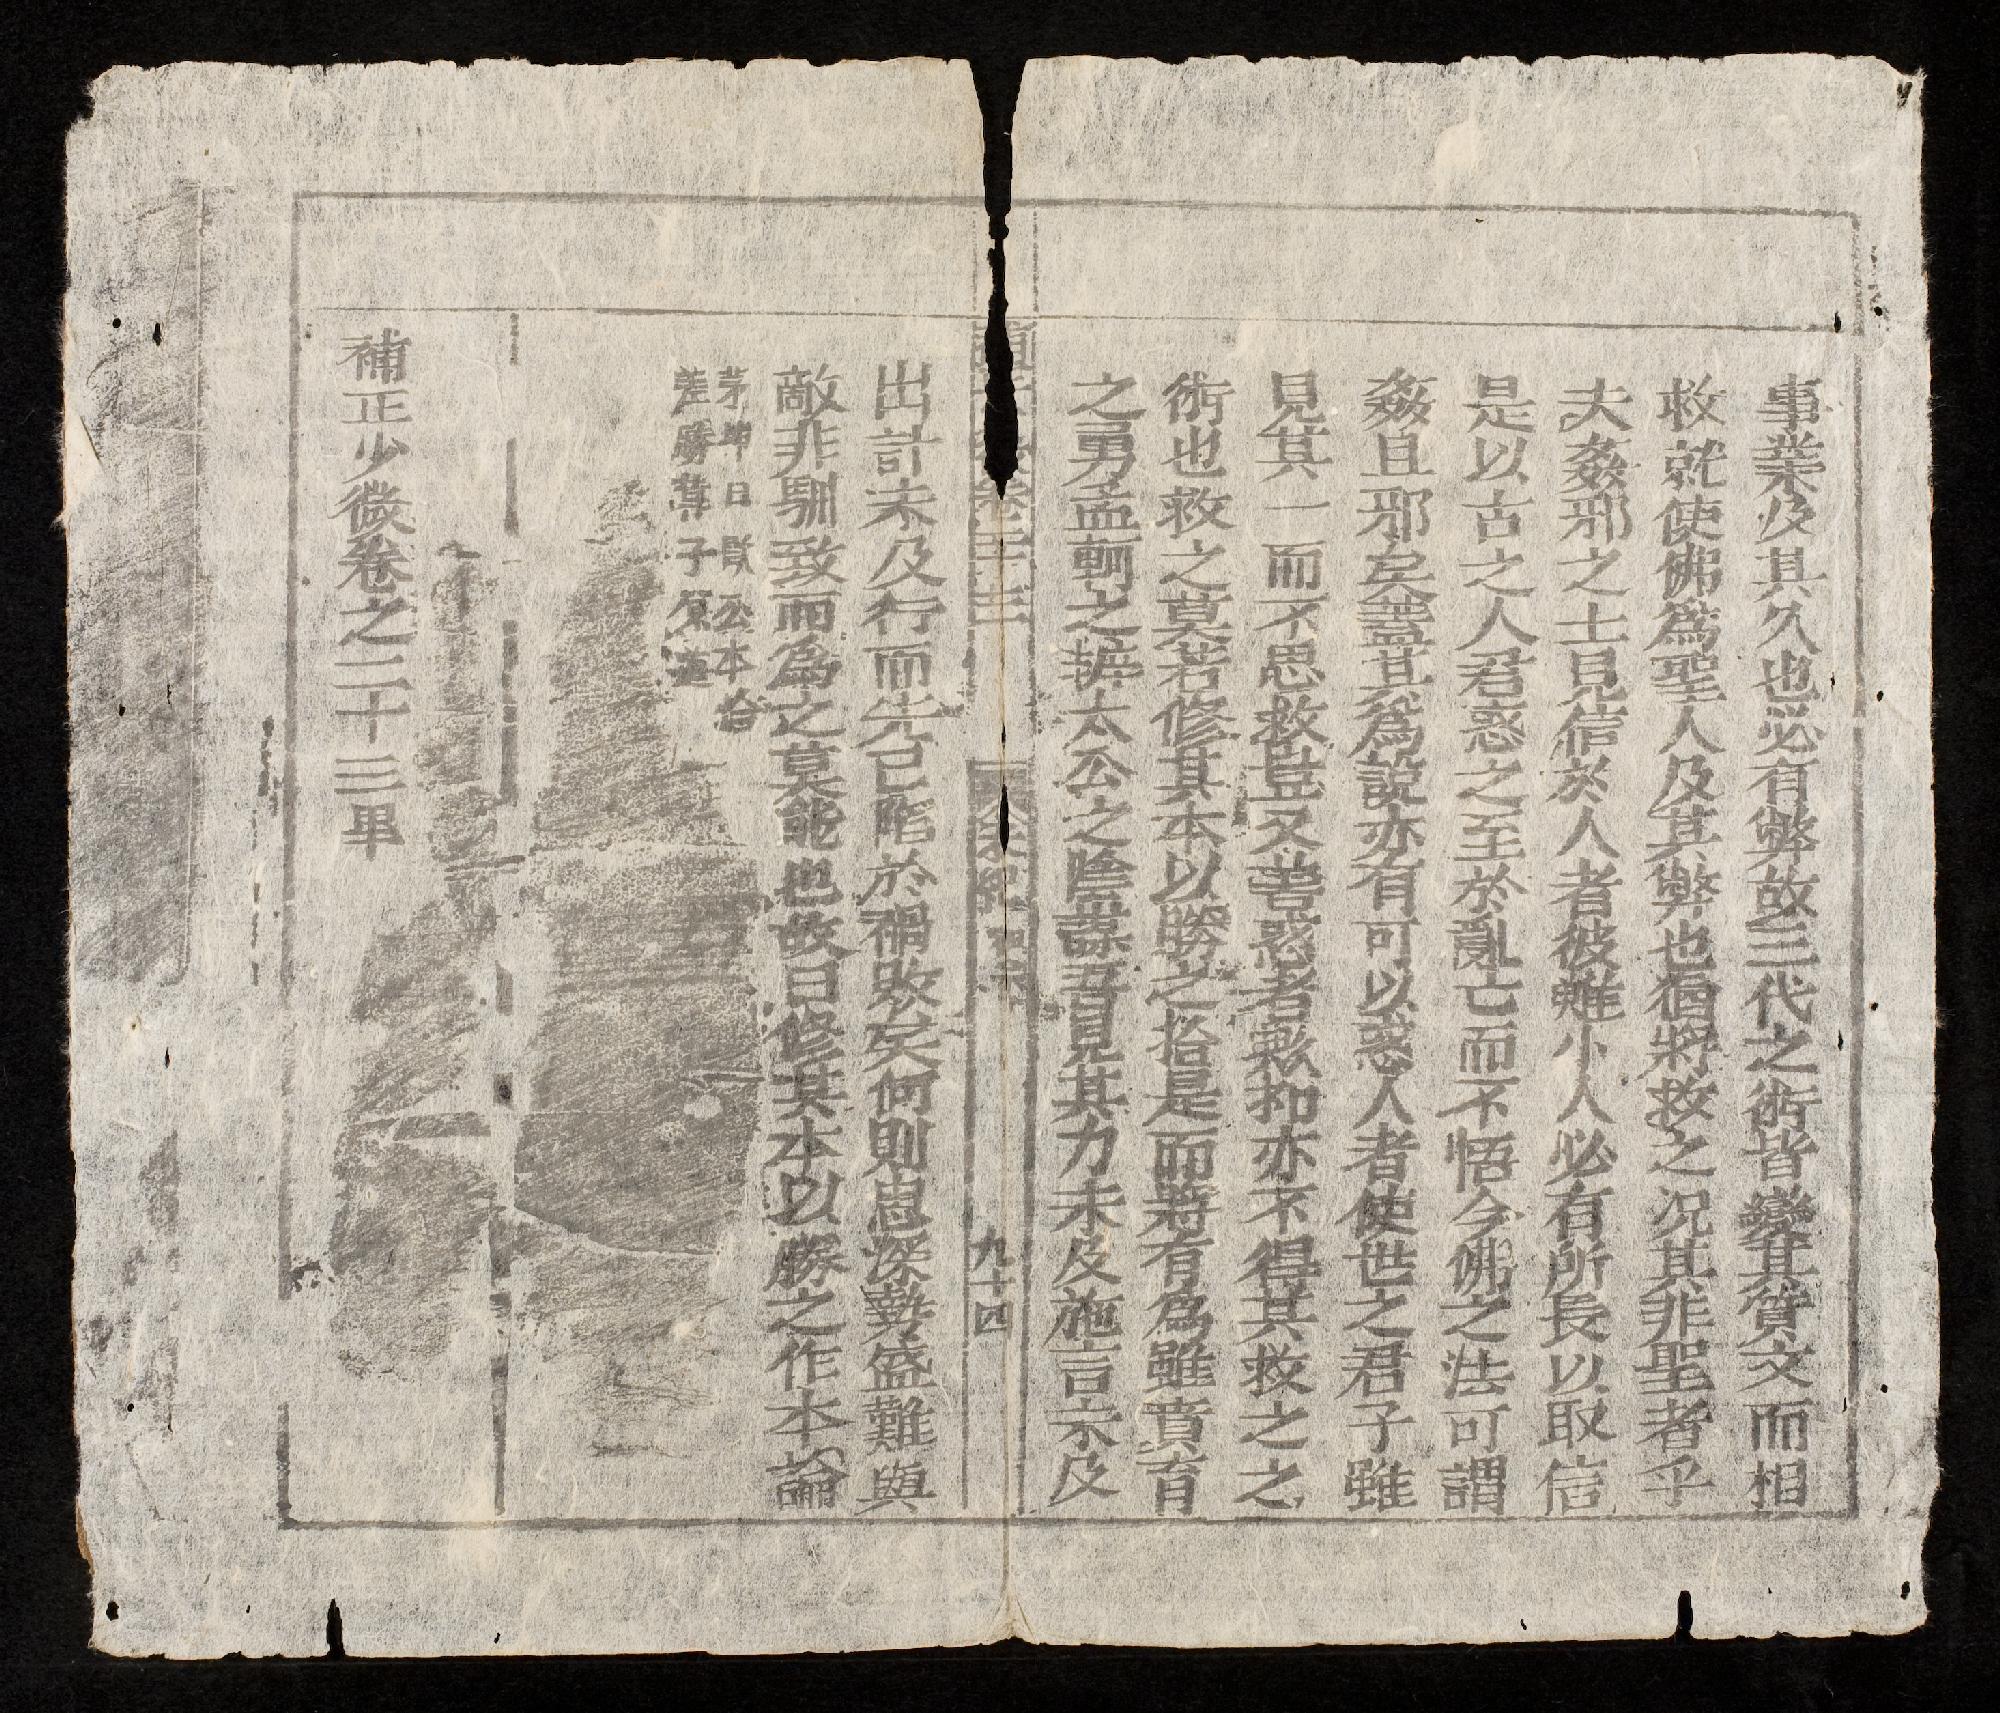 事業及其久也必有弊故三代之術皆變其質文而相
救就使佛爲聖人及其弊也猶將救之况其非聖者乎
夫姦邪之士見信於人者彼雖小人必有所長以取信
是以古之人君惑之至於亂亡而不悟今佛之法可謂
姦且邪矣蓋其爲說亦有可以惑人者使世之君子雖
見其一而不思救豈又善惑者歟抑亦不得其救之之
術也救之莫若修其本以勝之捨是而將有為雖賁育
之勇孟軻之辨太公之陰謀吾見其力未及施言未及
卷二十三
九十四
出計未及行而先已陷於禍敗矣何則患深勢盛難與
敵非馴致而爲之莫能也故曰修其本以勝之作本論
茅坤曰歐公本論
差勝韓子原道
補正少微卷之二十三畢